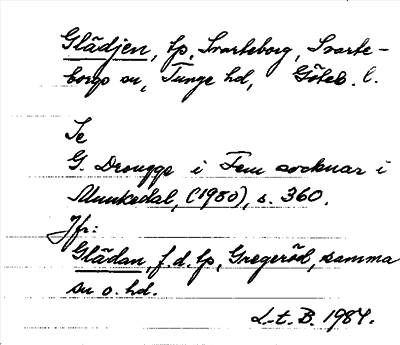 Glädjen, tp, Svarteborg, Svarte-
borgs sn, Tunge hd, Göteb. l.
Se
G. Drougge i Fem socknar i
Munkedal, (1980), s. 360.
Jfr:
Glädan, f.d. tp, Gregeröd, samma
sn o. hd.
L-t. B. 1984.